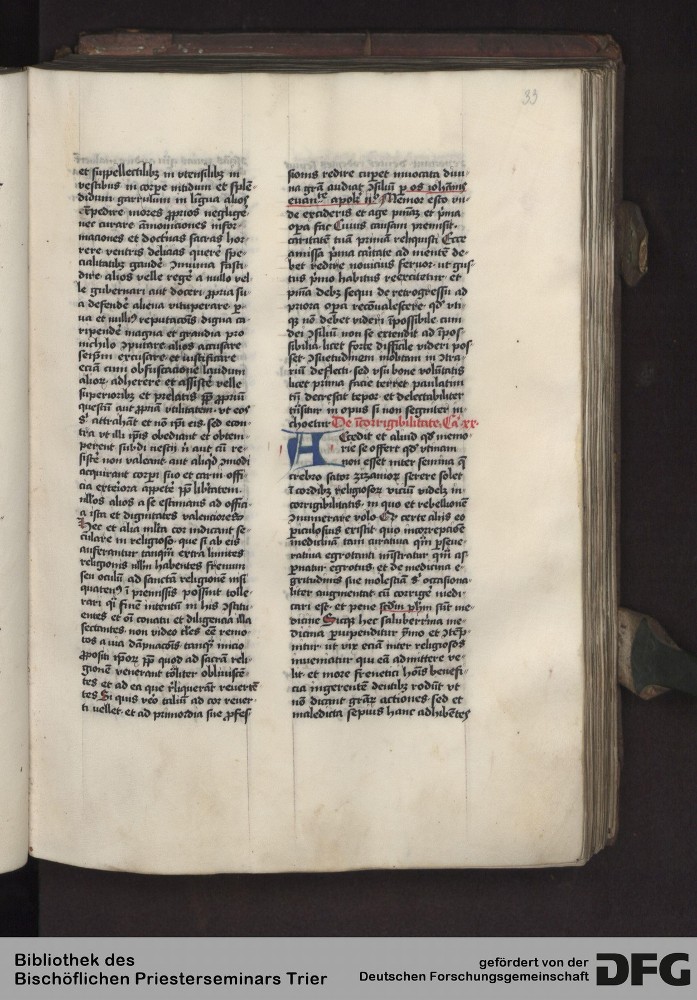 33
et suppellectilibz in vtensilibz in
vestibus in corpe nitidum et splē-
didum garrulum in ligua alios
īpedire mores ꝓprios neglige
nec curare āmoniciones infor-
maciones et doctrinas sacras hor-
rere ventris delicias querē spe-
cialitatibz gaudē
dire alios velle regē a nullo vel-
le gubernari aut doceri ꝓpria su
a defendē aliena vituperare
ua et nullis reputacōis digna ca
ripendē magna et grandia pro
nichilo ꝯputare alios accusare
seipm excusare et iustificare
eciā cum obfuscacione laudum
alioꝝ adherere et assistē velle
superioribz et prelatis ꝓpriū
questū aut ꝓpriā vtilitatem vt eos
s attrahāt et nō ipi eis sed econ
tra vt illi ipis obediant et obtem
perent subdi nescii
sistē non valeant aut aliqd
acquirant corpi suo et carni offi
cia exteriora appetē libitatem
nullos alios a se estimans ad offici
a ista et dignitates valenciores
Hec et alia mlta cor indicant se-
culare in religioso que si ab eis
auferantur tanqm extra limites
religionis nllm habentes frenum
seu oculū ad sanctā religionē nisi
quaten9 ī premissis possint tolle
rari qi finē intentū in his ꝯstitu
entes et oī conatu et diligencia illa
sectantes non video eē remo
tos a via dāpnacōis tanqm inicio
ꝓpositi ipoꝝ quod ad sacrā reli
gionē venerant tōliter obliuiscē
tes et ad ea que reliquerāt reuertē
tes Si quis vero taliū ad cor reuer
ti vellet et ad primordia sue ꝓfes
sionis redire cupet inuocata diui
na gra audiat ꝯsiliū p os iohannis
euan te apok ii Memor esto vn
de excideris et age pniaz et pma
opa fac Cuius causam premisit
caritatē tuā primā reliquisti Ecce
amissa pma caitate ad mentē de
bet redire nouicius feruor vt gus
tus pmo habitus reexcitetur et
pnia debz sequi de retrogressu ad
priora opa reconualescere qd vti
qz nō debet videri īpossibile cum
dei ꝯsiliū non se extendit ad īpos
sibilia licet forte difficile videri pos
set ꝯsuetudinem in ꝯtra
riū deflecti sed vsu bone volūtatis
licet prima facie terret paulatim
tn decrescit tepor et delectabiliter
trāsitur in opus si non segniter in
choetur De īcorrigibilitate Ca xx
Accedit et aliud qd memo
rie se offert qd vtinam
non esset inter semina q
crebro sator zizanioꝝ serere solet
ī cordibz religiosoꝝ viciū videlz in
corrigibilitatis in quo et rebellionē
ꝯnumerare volo Qr certe aliis eo
piculosius existit quo increpacio
medicina tam curatiua qm pserue
ratiua egrotanti ministratur qm as
pnatur egrotus et de medicina e-
gritudinis sue molestiā s occasiona-
liter augmentat cū corrigē medi
cari est et pene scdm phm sūt me
dicine Sicqz hec saluberrima me
dicina puipenditur ymo et
nitur vt vix eciā inter religiosos
inueniatur qui eā admittere ve-
lit et more frenetici hōis benefi-
cia ingerentē dentibz rodūt vt
nō dicant graꝝ actiones sed et
maledicta sepius hanc adhibētes
Bibliothek des
Bischöflichen Priesterseminars Trier
gefördert von der
Deutschen Forschungsgemeinschaft
DFG